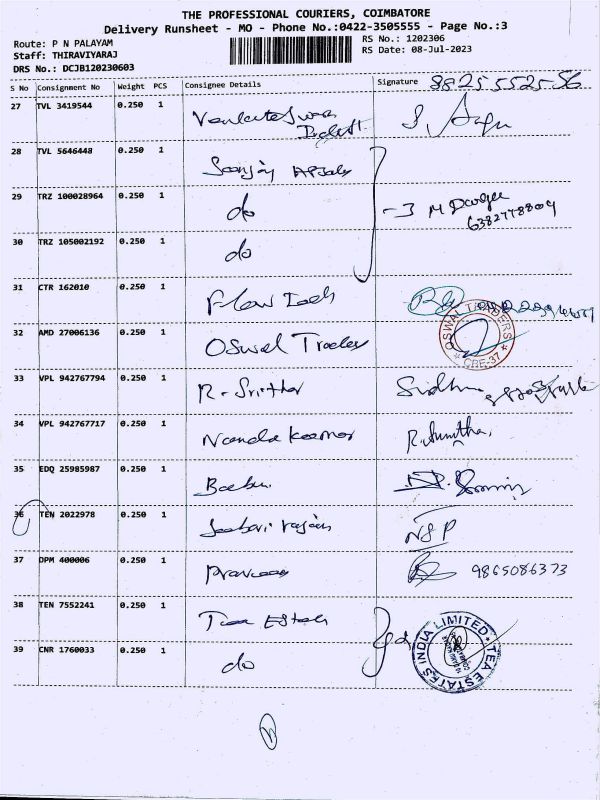 THE PROFESSIONAL COURIERS, COIMBATORE
Delivery Runsheet - MO - Phone No.:0422-3505555 - Page No.:3
Route: P N PALAYAM
RS No.: 1202306
Staff: THIRAVIYARAJ
RS Date: 08-Jul-2023
DRS No.: DCJB120230603
S No Consignment No Weight PCS Consignee Details Signature 8825552556
27 TVL 3419544 0.250 1
28 TVL 5646448 0.250 1 Sanjay
29 TRZ 100028964 0.250 1 do
6382778804
30 TRZ 105002192 0.250 1 do
31 CTR 162010 0.250 1 Flow Tech
32 AMD 27006136 0.250 1 Oswal Traders OSWAL TRADERS * CBE-37 *
33 VPL 942767794 0.250 1 R. Sridhar Sridhar
34 VPL 942767717 0.250 1 Nanda Kumar R. Sumitha,
35 EDQ 25985987 0.250 1 Babu
36 TEN 2022978 0.250 1 NSP
37 DPM 400006 0.250 1 Praveen 9865086373
38 TEN 7552241 0.250 1 Tea Estate
39 CNR 1760033 0.250 1 do TEA ESTATES INDIA LIMITED